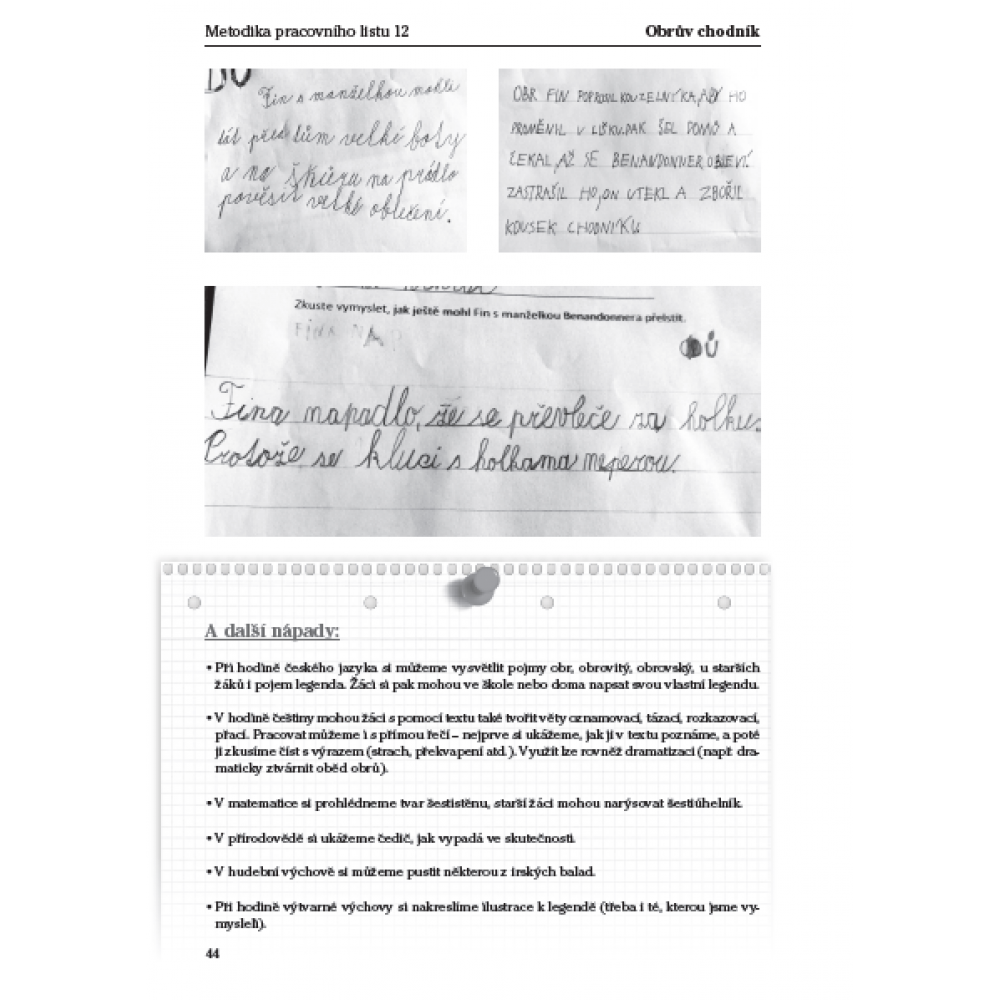 Metodika pracovního listu 12
Obrův chodník
DÚ
Fin s manželkou mohli
dát před dům velké boty
a na šňůru na prádlo
pověsit velké oblečení.
OBR FIN POPROSIL KOUZELNÍKA, ABY HO
PROMĚNIL V LIŠKU. PAK ŠEL DOMŮ A
ČEKAL, AŽ SE BENANDONNER OBJEVÍ.
ZASTRAŠIL HO, ON UTEKL A ZBOŘIL
KOUSEK CHODNÍKU
Zkuste vymyslet, jak ještě mohl Fin s manželkou Benandonnera přelstít.
FINA NAP
DÚ
Fina napadlo, že se převleče za holku.
Protože se kluci s holkama neperou.
A další nápady:
• Při hodině českého jazyka si můžeme vysvětlit pojmy obr, obrovitý, obrovský, u starších
žáků i pojem legenda. Žáci si pak mohou ve škole nebo doma napsat svou vlastní legendu.
• V hodině češtiny mohou žáci s pomocí textu také tvořit věty oznamovací, tázací, rozkazovací,
přací. Pracovat můžeme i s přímou řečí – nejprve si ukážeme, jak ji v textu poznáme, a poté
ji zkusíme číst s výrazem (strach, překvapení atd.). Využít lze rovněž dramatizaci (např. dra-
maticky ztvárnit oběd obrů).
• V matematice si prohlédneme tvar šestistěnu, starší žáci mohou narýsovat šestiúhelník.
• V přírodovědě si ukážeme čedič, jak vypadá ve skutečnosti.
• V hudební výchově si můžeme pustit některou z irských balad.
• Při hodině výtvarné výchovy si nakreslíme ilustrace k legendě (třeba i té, kterou jsme vy-
mysleli).
44